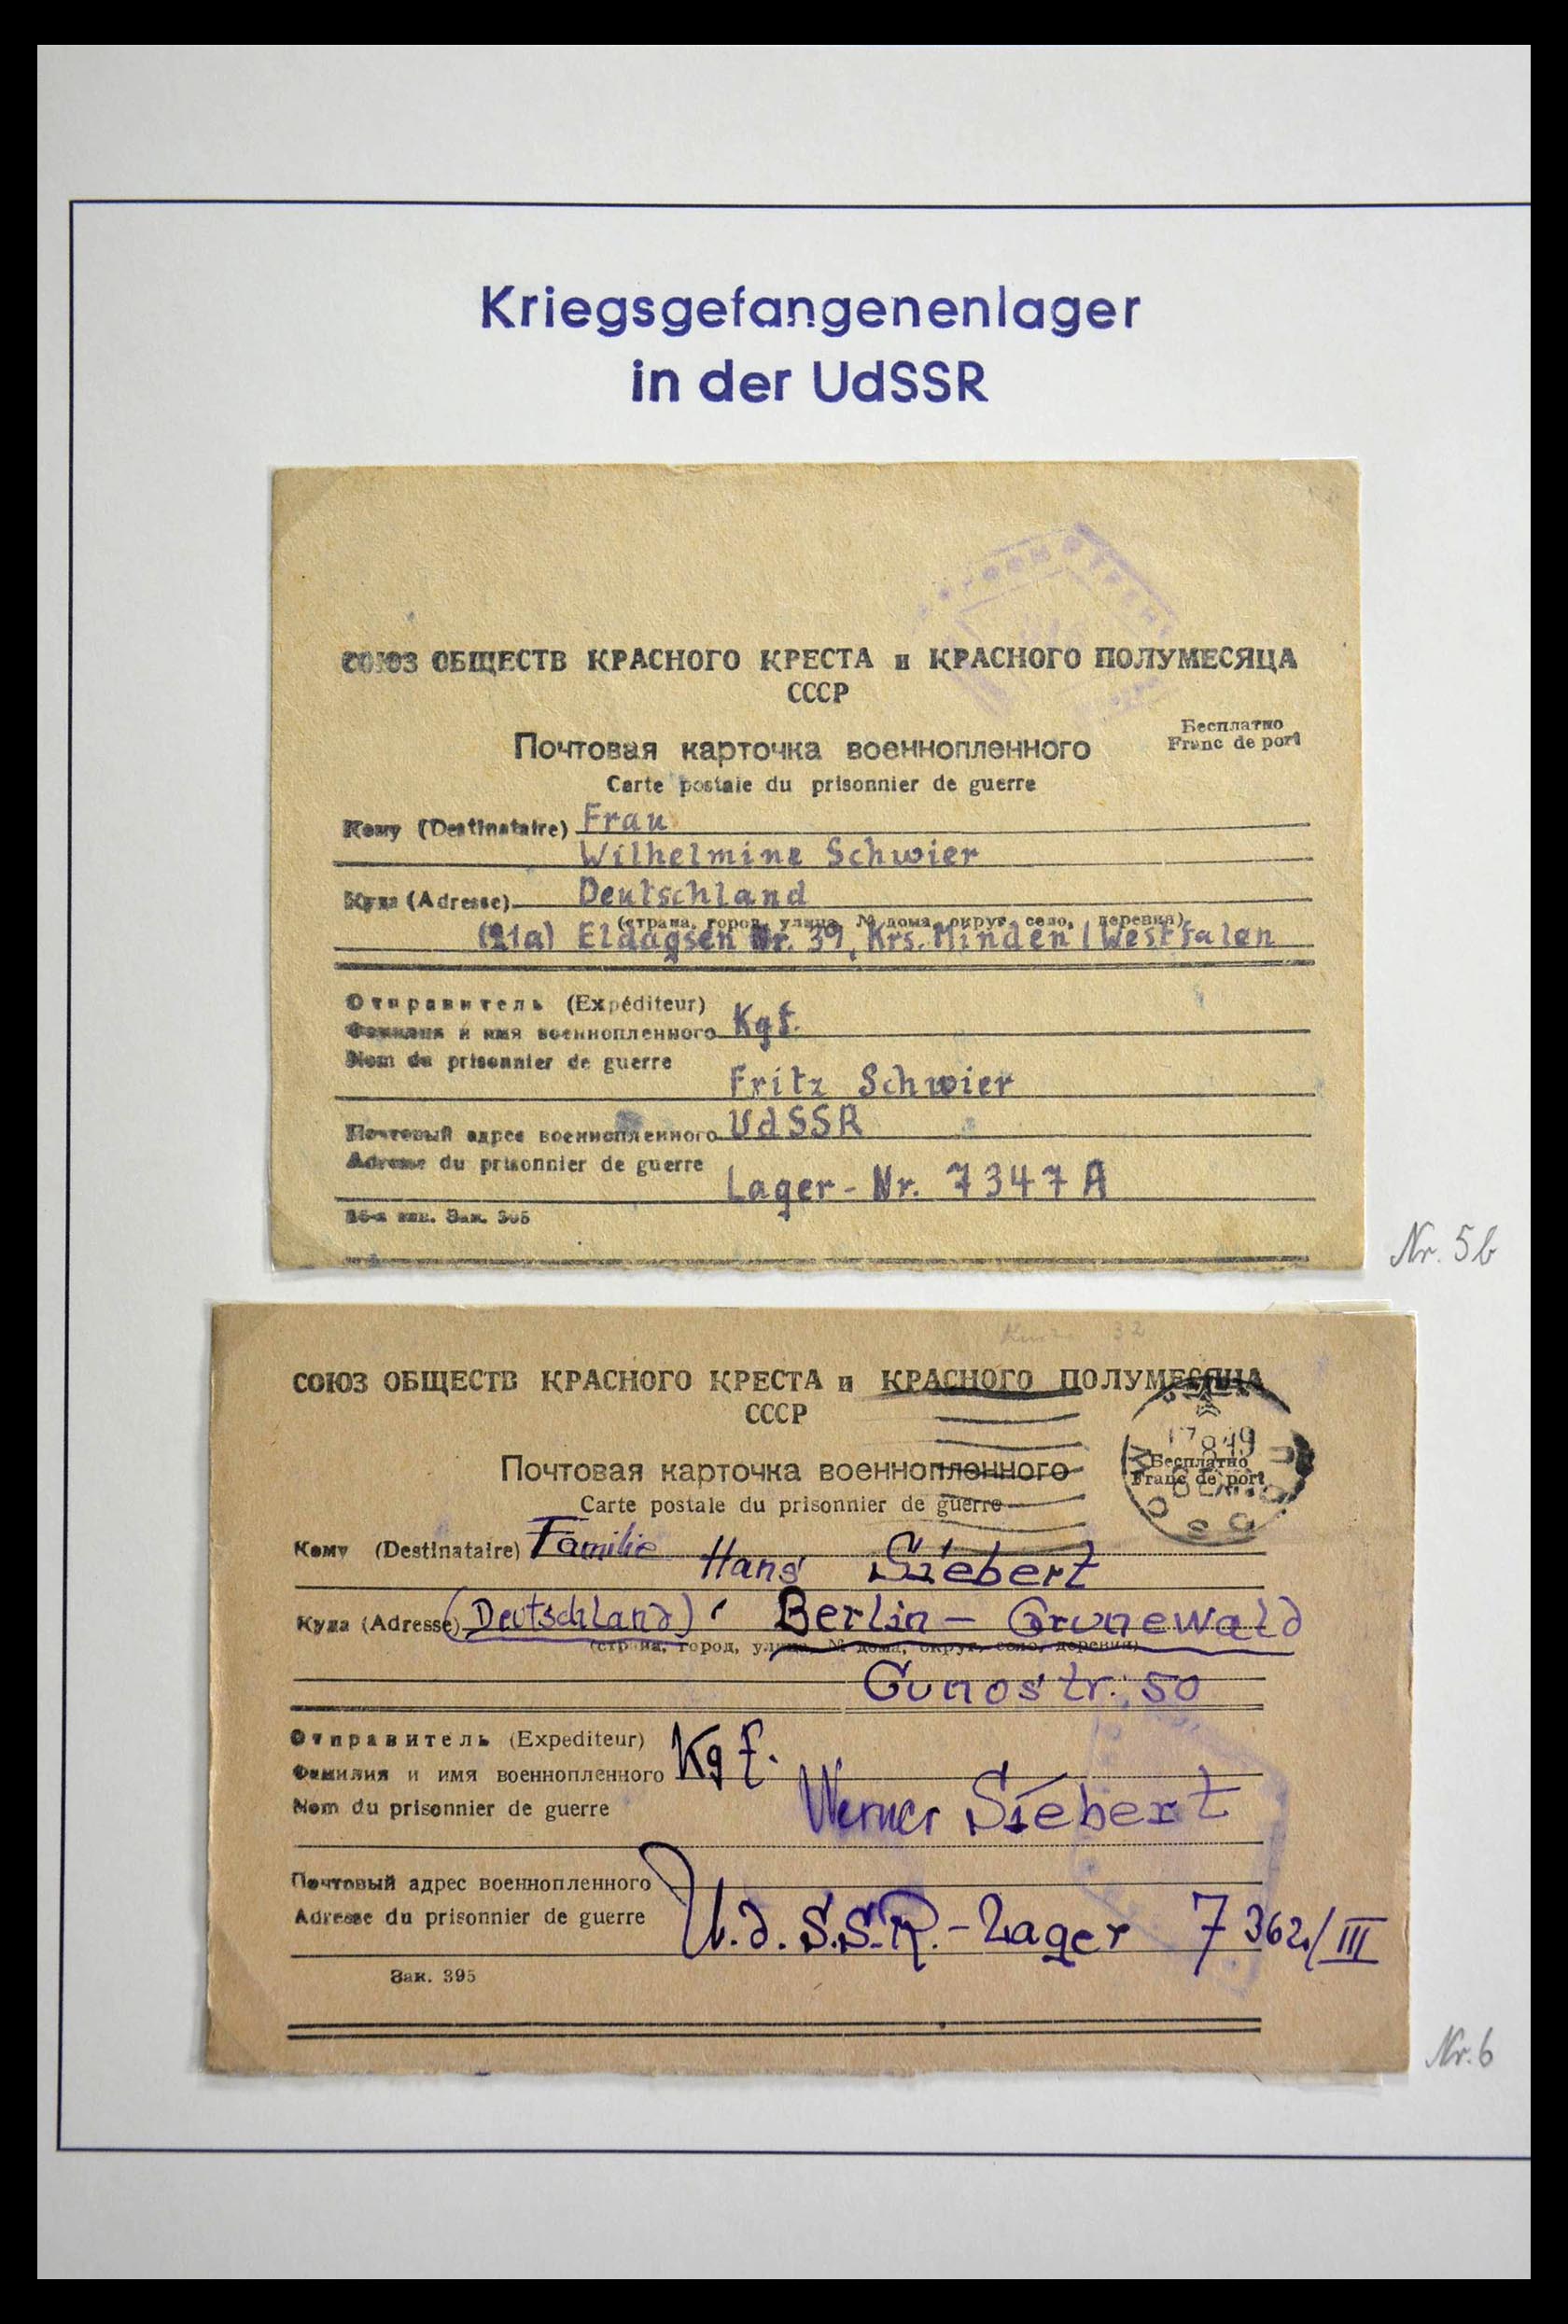 Kriegsgefangenenlager
in der UdSSR
СОЮЗ ОБЩЕСТВ КРАСНОГО КРЕСТА и КРАСНОГО ПОЛУМЕСЯЦА
СССР
Бесплатно
Franc de port
Почтовая карточка военнопленного
Carte postale du prisonnier de guerre
Кому (Destinataire) Frau
Wilhelmine Schwier
Куда (Adresse) Deutschland
(страна, город, улица, № дома, округ, село, деревня)
(21a) Eldagsen Nr. 39, Krs. Minden / Westfalen
Отправитель (Expéditeur)
Фамилия и имя военнопленного Kgf.
Nom du prisonnier de guerre
Fritz Schwier
Почтовый адрес военнопленного UdSSR
Adresse du prisonnier de guerre
Lager-Nr. 7347 A
16-я тип. Зак. 395
Nr. 5b
СОЮЗ ОБЩЕСТВ КРАСНОГО КРЕСТА и КРАСНОГО ПОЛУМЕСЯЦА
СССР
Почтовая карточка военнопленного
Бесплатно
Franc de port
Carte postale du prisonnier de guerre
Кому (Destinataire) Familie Hans Siebert
Куда (Adresse) (Deutschland) Berlin - Grunewald
(страна, город, улица, № дома, округ, село, деревня)
Cunostr. 50
Отправитель (Expediteur)
Фамилия и имя военнопленного Kgf.
Nom du prisonnier de guerre Werner Siebert
Почтовый адрес военнопленного
Adresse du prisonnier de guerre U.d.S.S.R.-Lager 7362/III
Зак. 395
Nr. 6